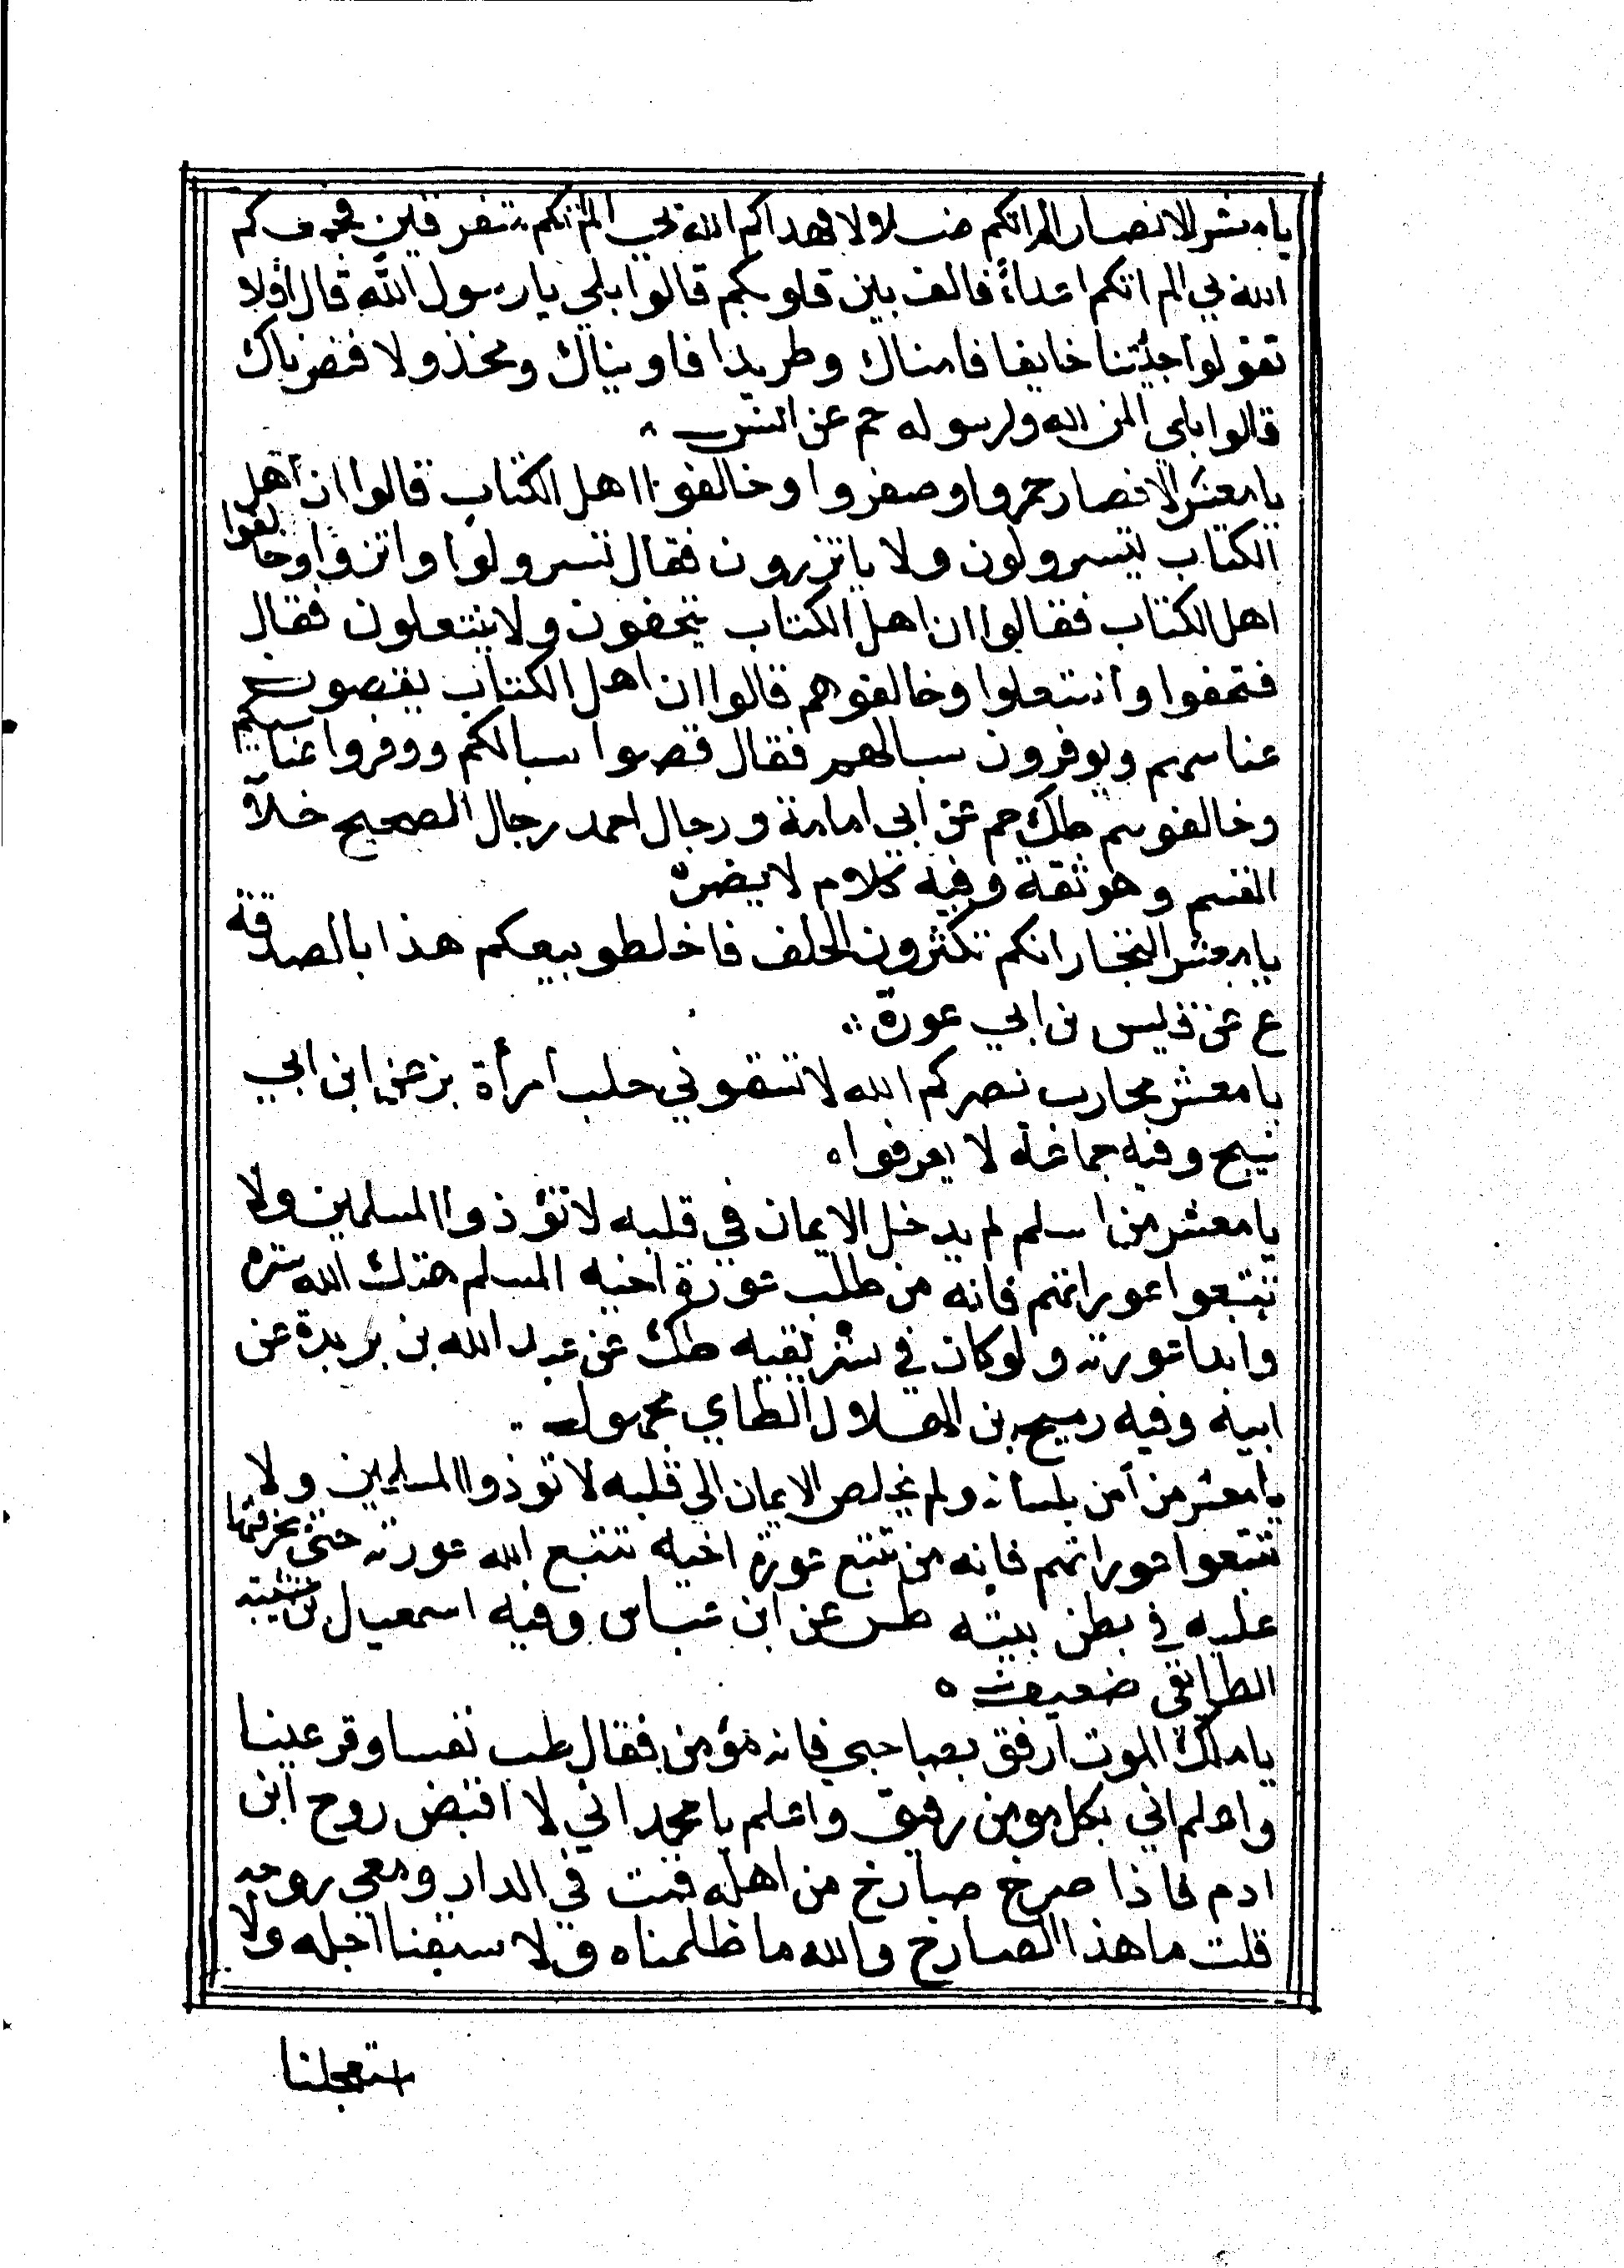 يا معشر الانصار الم اتكم ضلالا فهداكم الله بي الم اتكم متفرقين فجمعكم
الله بي الم اتكم اعداءً فالف بين قلوبكم قالوا بلي يا رسول الله قال افلا
تقولوا جئتنا خايفا فامناك وطريدا فاويناك ومخذولا فنصرناك
قالوا بلي المن لله ولرسوله حم عن انس
يا معشر الانصار حمروا وصفروا وخالفوا اهل الكتاب قالوا ان اهل
الكتاب يتسرولون ولا ياتزرون فقال تسرولوا واتزروا وخالفوا
اهل الكتاب فقالوا ان اهل الكتاب يتخفون ولا ينتعلون فقال
فتخفوا وأنتعلوا وخالفوهم قالوا ان اهل الكتاب يقصون
عنانينهم ويوفرون سبالهم فقال قصوا سبالكم ووفروا عثانينكم
وخالفوهم طك حم عن ابي امامة ورجال احمد رجال الصحيح خلا
القسم وهو ثقة وفيه كلام لا يضره
يا معشر التجار انكم تكثرون الحلف فاخلطو بيعكم هذا بالصدقة
ع عن قيس بن ابي عورة
يا معشر محارب نصركم الله لا تسقوني حلب أمرأة بز عن ابن ابي
نيبح وفيه جماعة لا يعرفوا
يا معشر من اسلم لم يدخل الايمان في قلبه لا تؤذوا المسلمين ولا
تتبعوا عوراتهم فانه من طلب عورة اخيه المسلم هتك الله ستره
وابدا عورته ولو كان في ستر بيته طك عن عبد الله بن بريدة عن
ابيه وفيه رميح بن الهلال الطاي مجهول
يا معشر من آمن بلسانه ولم يخلص الايمان الي قلبه لا توذوا المسلمين ولا
تتبعوا عوراتهم فانه من تتبع عورة اخيه تتبع الله عورته حتي يخرقها
عليه في بطن بيته طس عن ابن عباس وفيه اسمعيل بن شيبه
الطايفي ضعيف
يا ملك الموت ارفق بصاحبي فانه مؤمن فقال طب نفسا وقر عينا
واعلم اني بكل مومن رفيق واعلم يا محمد اني لا اقبض روح ابن
ادم فاذا صرخ صارخ من اهله قمت في الدار ومعي روحه
قلت ما هذا الصارخ والله ما ظلمناه ولا سبقنا اجله ولا
استعجلنا